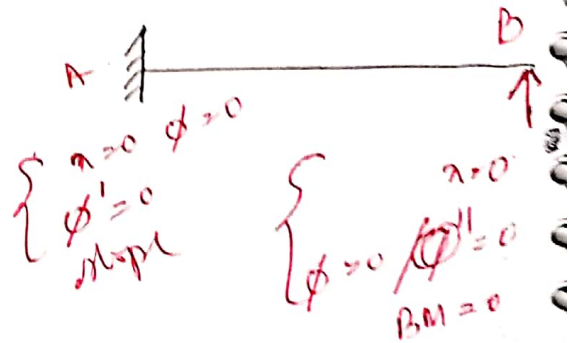 B
A
x=0 φ=0
φ'=0
slope
x=0
φ=0 φ''=0
BM=0